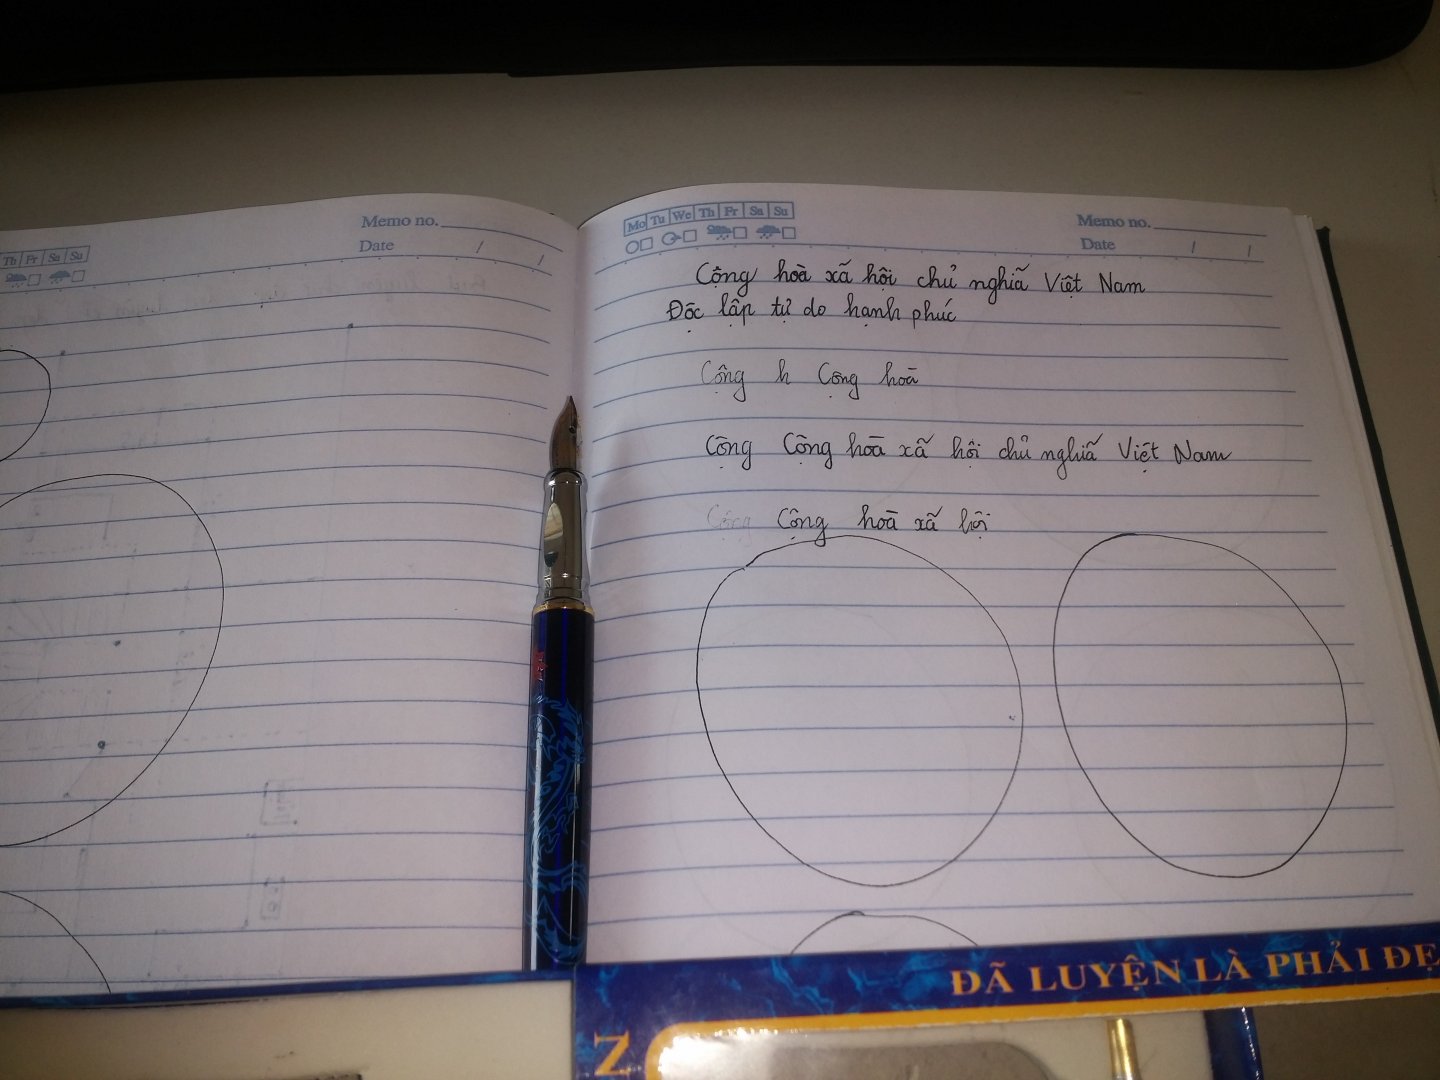 Th Fr Sa Su
Memo no.
Date / /
Mo Tu We Th Fr Sa Su
Memo no.
Date / /
Cộng hoà xã hội chủ nghiã Việt Nam
Độc lập tự do hạnh phúc
Cộng h Cộng hoà
Cộng Cộng hoà xã hội chủ nghiã Việt Nam
Cộng Cộng hoà xã hội
ĐÃ LUYỆN LÀ PHẢI ĐẸ
Z